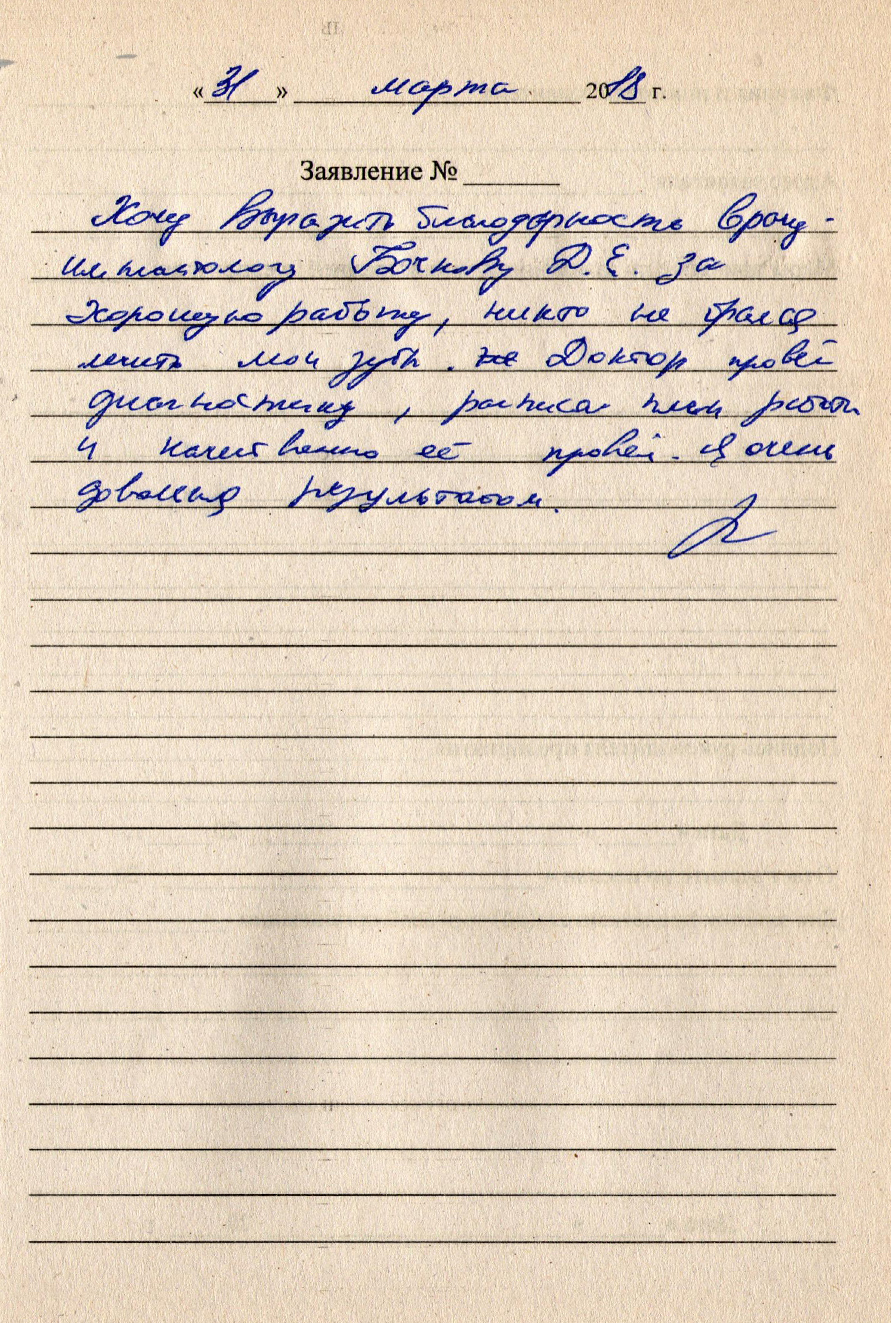 «31» марта 2018 г.
Заявление №
Хочу выразить благодарность врачу-
имплантологу Бочкову Д.Е. за
хорошую работу, никто не брался
лечить мои зубы. Доктор провёл
диагностику, расписал план работы
и качественно её провёл. Я очень
довольна результатом.